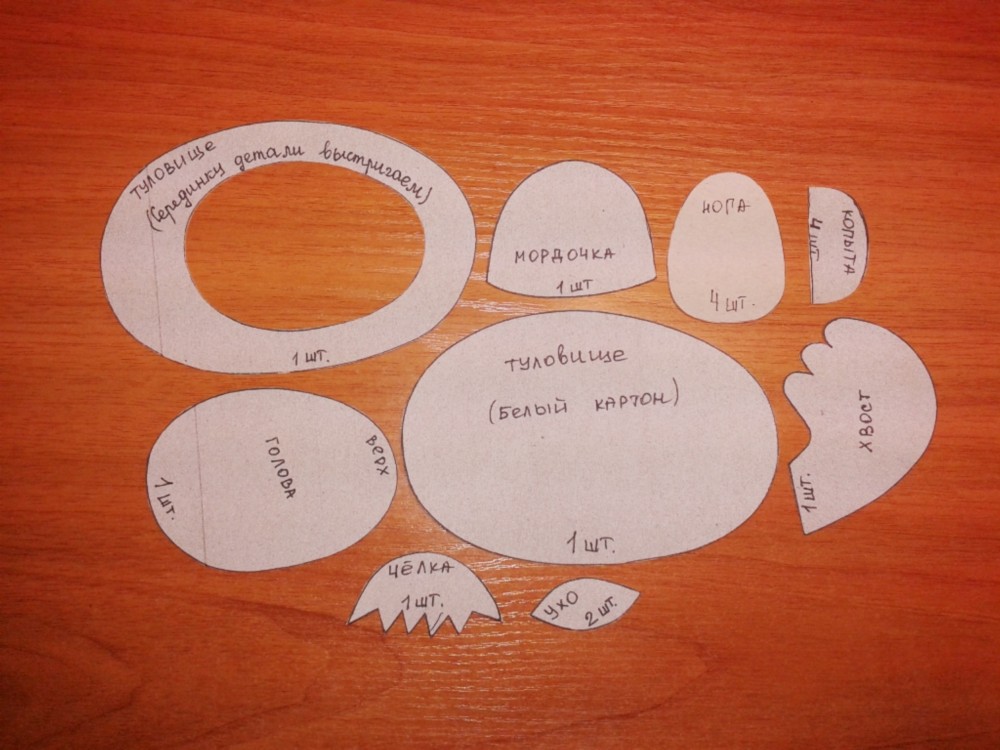 туловище
(Серединку детали выстригаем)
1 шт.
мордочка
1 шт
нога
4 шт.
копыта
4 шт.
туловище
(Белый картон)
1 шт.
хвост
1 шт.
голова
верх
1 шт.
чёлка
1 шт.
ухо
2 шт.